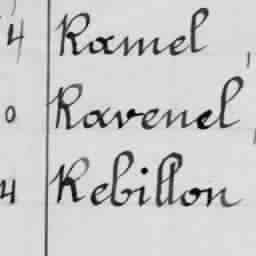 4 Ramel
0 Ravenel
4 Rebillon